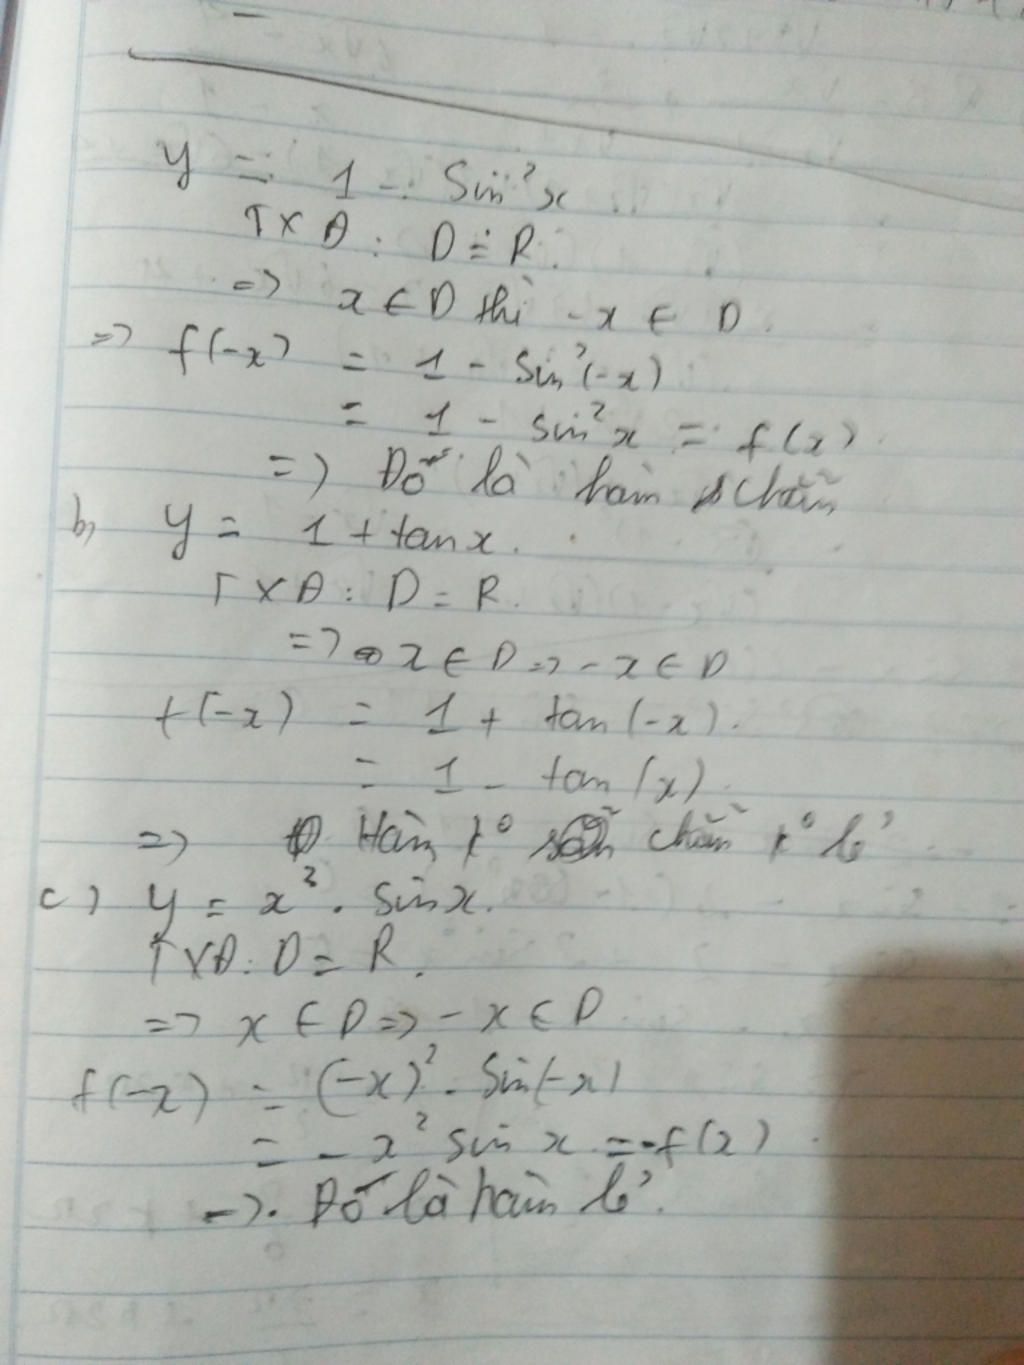 y = 1 - Sin²x
TXĐ : D = R.
=> x ∈ D thì -x ∈ D.
=> f(-x) = 1 - Sin²(-x)
= 1 - sin²x = f(x)
=> Đó là hàm chẵn
b, y = 1 + tanx.
TXĐ : D = R.
=> x ∈ D => -x ∈ D
f(-x) = 1 + tan(-x).
= 1 - tan(x).
=> Hàm k⁰ chẵn k⁰ lẻ
c) y = x² . sinx.
TXĐ : D = R.
=> x ∈ D => -x ∈ D
f(-x) = (-x)² . Sin(-x)
= - x² sin x = -f(x).
=>. Đó là hàm lẻ.